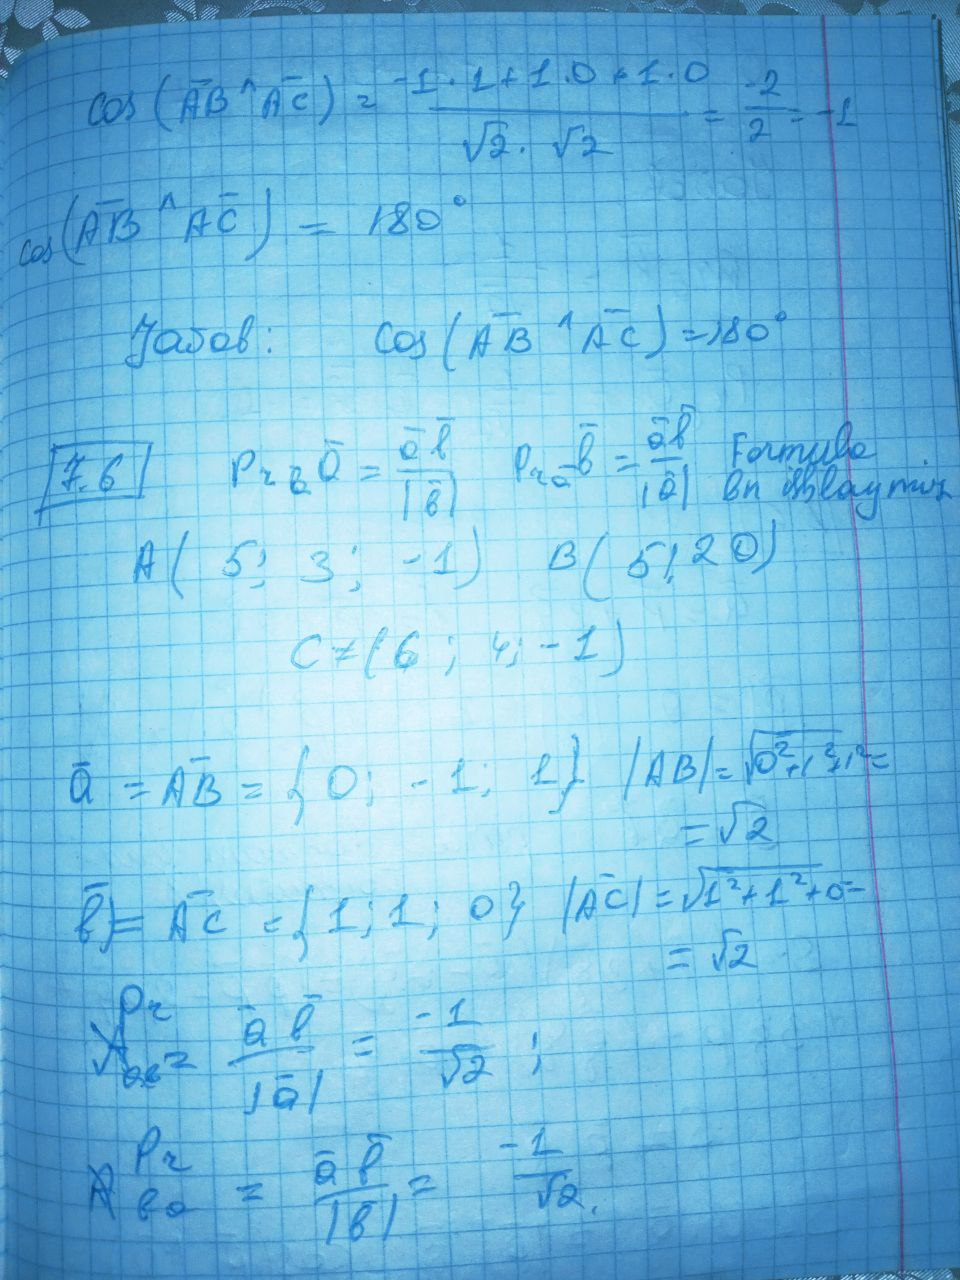 cos(AB̄ ^ AC̄) = -1·1+1·0+1·0 / √2·√2 = -2/2 = -1
cos(AB̄ ^ AC̄) = 180°
cos(AB̄ ^ AC̄) = 180°
7.6 Pr b ā = āb̄/|b̄| Pr ā b̄ = āb̄/|ā| Formula
A( 5; 3; -1) B( 5; 2 0)
C = (6; 4; -1)
ā = AB̄ = { 0; -1; 1} |AB| = √0²+1²+1² =
= √2
b̄ = AC̄ = {1; 1; 0} |AC̄| = √1²+1²+0 =
= √2
Pr ab = āb̄/|ā| = -1/√2 ;
Pr ba = āb̄/|b̄| = -1/√2.